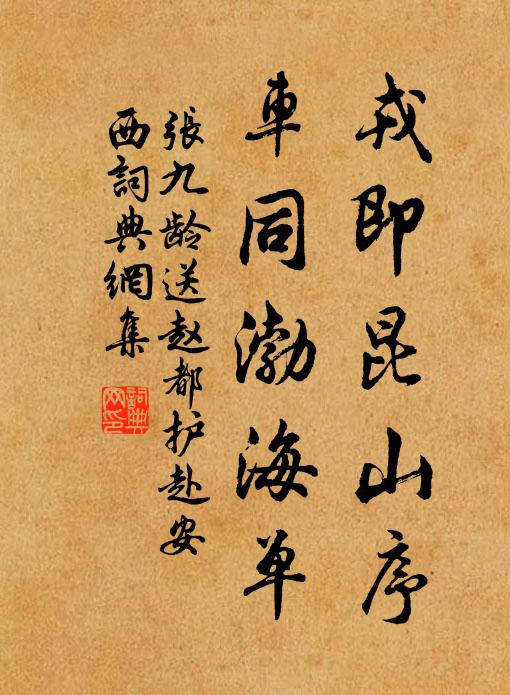 戎即昆山序
車同渤海单
張九龄送赵都护赴安
西詞典網集
詞典
网印